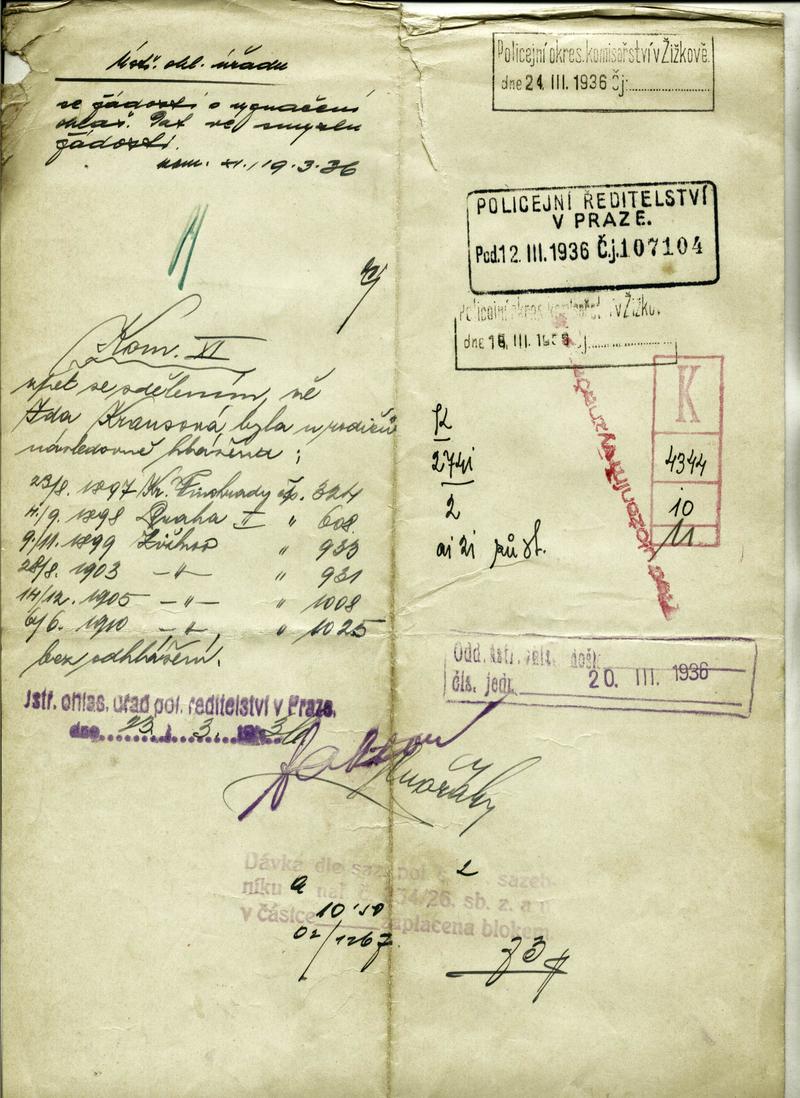 Ústř. ohl. úřadu
se žádostí o vyznačení
ohlaš. dat ve smyslu
žádosti.
kom. XI./19.3.36
Kom. XI
zpět se sdělením, že
Ida Krausová byla u rodičů
následovně hlášena:
23/8. 1897 Kr. Vinohrady čp. 324
4/9. 1898 Praha II " 608
9/11. 1899 Žižkov " 933
28/8. 1903 —"— " 931
14/12. 1905 —"— " 1008
6/6. 1910 —"— " 1025
bez odhlášení.
Ústř. ohlas. úřad pol. ředitelství v Praze,
dne 23. 3. 1936
Policejní okres. komisařství v Žižkově.
dne 24. III. 1936 Čj:
POLICEJNÍ ŘEDITELSTVÍ
V PRAZE.
Pod. 12. III. 1936 Č.j. 107104
Policejní okres. komisařství v Žižkov
dne 18. III. 1936 Čj.
K
4344
10
11
K
274i
2
Odd. ústř. došl.
čís. jedn. 20. III. 1936
Dávka dle saz. pol. sazeb-
níku nař. č. 174/26. sb. z. a n
v částce zaplacena blokem
2
10'50